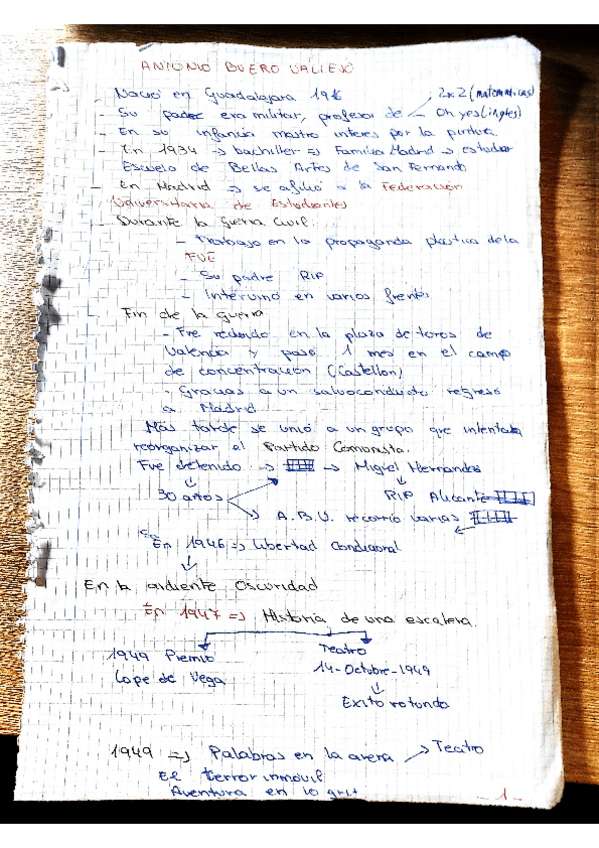 ANTONIO BUERO VALLEJO
- Nació en Guadalajara 1916
- Su padre era militar, profesor de - 2x2 (matematicas)
Oh yes (ingles)
- En su infancia mostro interes por la pintura.
- En 1934 → bachiller => Familia Madrid → estudiar
Escuela de Bellas Artes de San Fernando
- En Madrid → se afilió a la Federación
Universitaria de Estudiantes
- Durante la guerra Civil.
- Trabajo en la propaganda plastica de la
FUE
- Su padre RIP
- Intervino en varios frentes
- Fin de la guerra
- Fue recluido en la plaza de toros de
Valencia y paso 1 mes en el campo
de concentración (Castellon)
- Gracias a un salvoconducto regreso
a Madrid
Más tarde se unió a un grupo que intentaba
reorganizar el Partido Comunista.
Fue detenido → → Miguel Hernandez
30 años RIP Alicante
A.B.V. recorrió varias
En 1946 => Libertad Condicional
En la ardiente Oscuridad
En 1947 => Historia de una escalera.
1949 Premio
Lope de Vega
Teatro
14-Octubre-1949
Exito rotundo
1949 => Palabras en la arena → Teatro
El terror inmovil
Aventura en lo gris
-1-